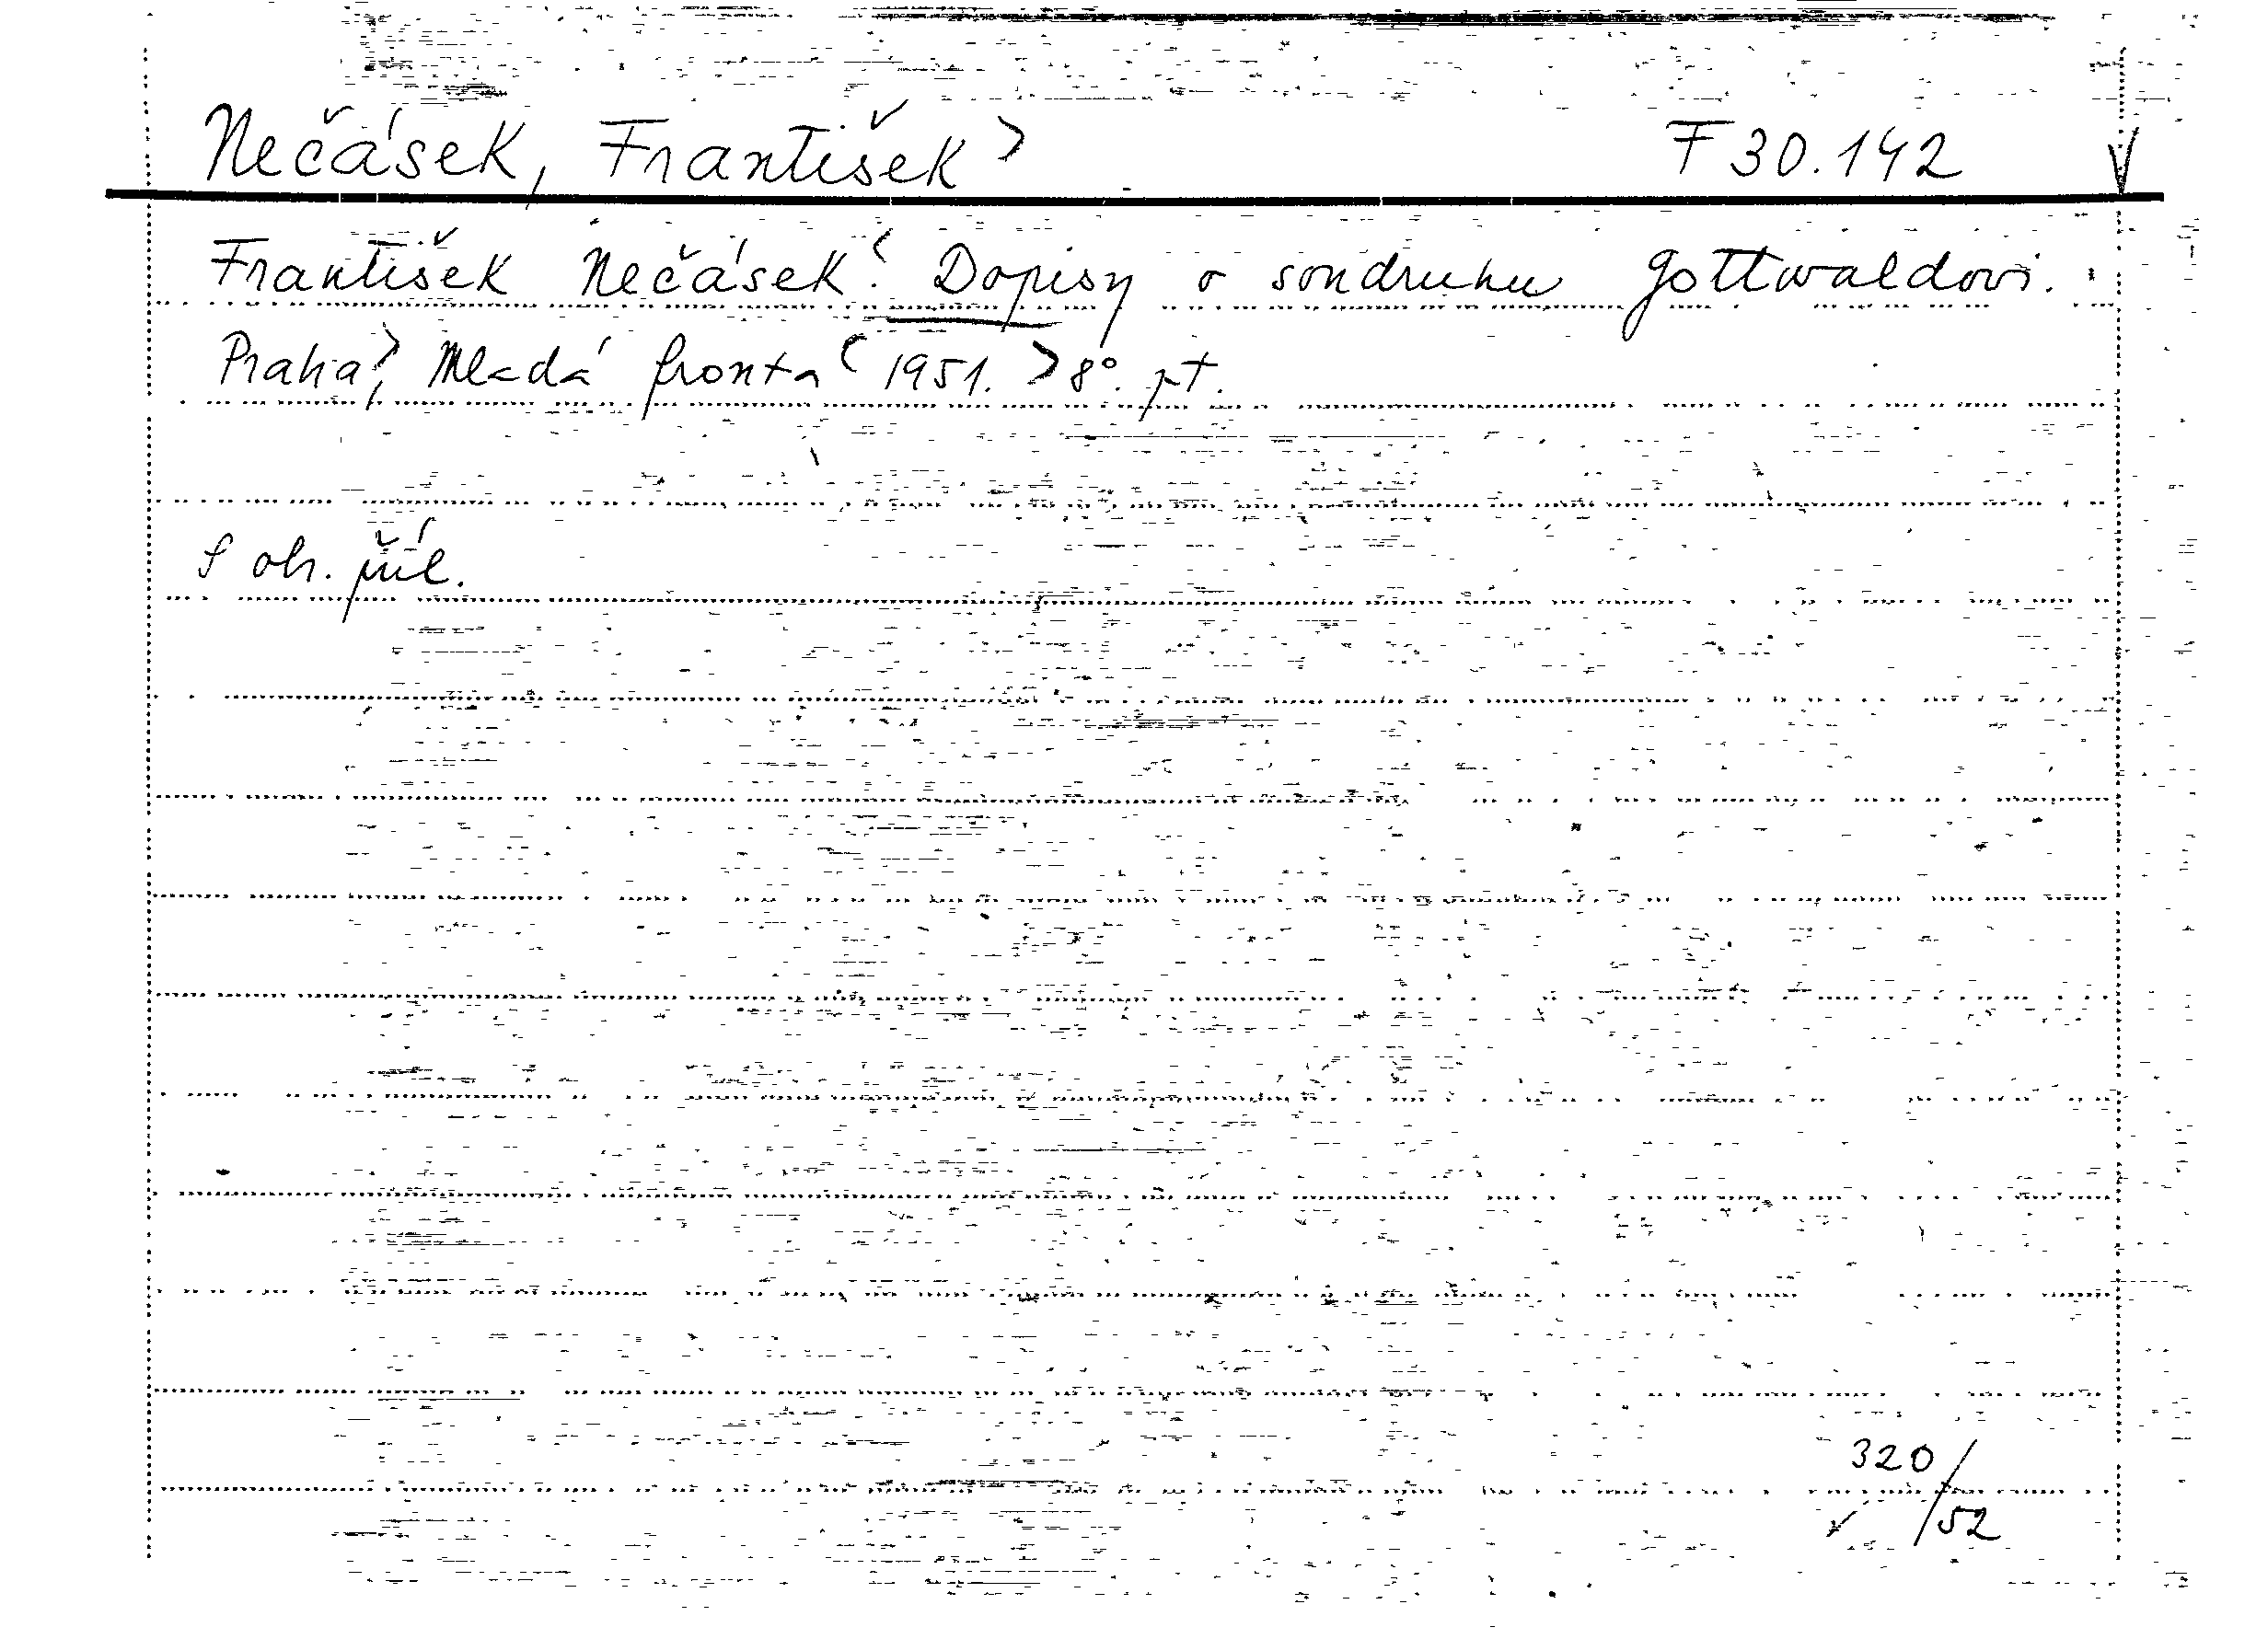 Nečásek, František> F 30.142 V
František Nečásek<: Dopisy o soudruhu Gottwaldovi.
Praha>, Mladá fronta< 1951. >8°. pt.
S obr. příl.
320/52